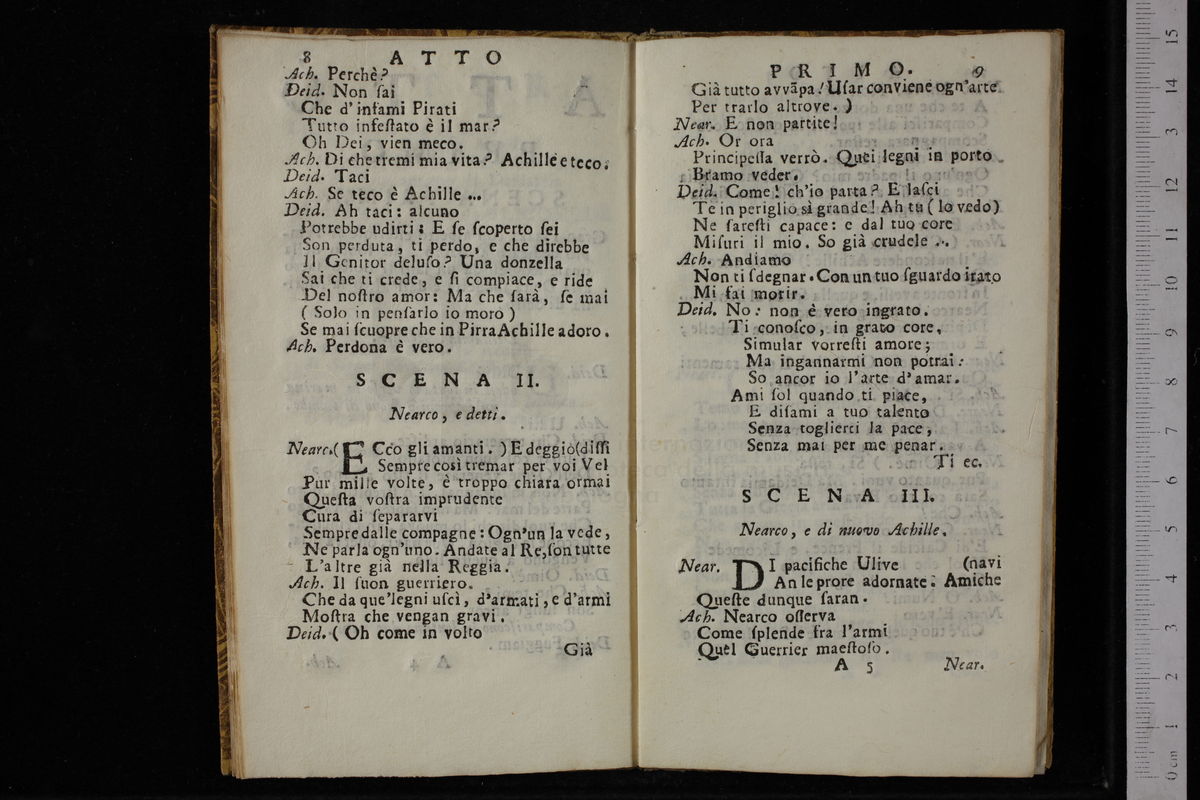 8 ATTO
Ach. Perchè?
Deid. Non ſai
Che d'infami Pirati
Tutto infeſtato è il mar?
Oh Dei, vien meco.
Ach. Di che tremi mia vita? Achille e teco.
Deid. Taci
Ach. Se teco è Achille ...
Deid. Ah taci: alcuno
Potrebbe udirti: E ſe ſcoperto ſei
Son perduta, ti perdo, e che direbbe
Il Genitor deluſo? Una donzella
Sai che ti crede, e ſi compiace, e ride
Del noſtro amor: Ma che ſarà, ſe mai
(Solo in penſarlo io moro)
Se mai ſcuopre che in Pirra Achille adoro.
Ach. Perdona è vero.
SCENA II.
Nearco, e detti.
Nearc. (ECco gli amanti.) E deggio (diſſi
Sempre così tremar per voi Vel
Pur mille volte, è troppo chiara ormai
Queſta voſtra imprudente
Cura di ſepararvi
Sempre dalle compagne: Ogn'un la vede,
Ne parla ogn'uno. Andate al Re, ſon tutte
L'altre già nella Reggia.
Ach. Il ſuon guerriero.
Che da que'legni uſcì, d'armati, e d'armi
Moſtra che vengan gravi.
Deid. (Oh come in volto
Già
PRIMO. 9
Già tutto avvāpa! Uſar conviene ogn'arte
Per trarlo altrove.)
Near. E non partite!
Ach. Or ora
Principeſſa verrò. Quei legni in porto
Bramo veder.
Deid. Come! ch'io parta? E laſci
Te in periglio sì grande! Ah tu (lo vedo)
Ne ſareſti capace: e dal tuo core
Miſuri il mio. So già crudele ...
Ach. Andiamo
Non ti ſdegnar. Con un tuo ſguardo irato
Mi fai morir.
Deid. No: non è vero ingrato.
Ti conoſco, in grato core,
Simular vorreſti amore;
Ma ingannarmi non potrai:
So ancor io l'arte d'amar.
Ami ſol quando ti piace,
E diſami a tuo talento
Senza toglierti la pace,
Senza mai per me penar.
Ti ec.
SCENA III.
Nearco, e di nuovo Achille.
Near. DI pacifiche Ulive (navi
An le prore adornate. Amiche
Queſte dunque ſaran.
Ach. Nearco oſſerva
Come ſplende fra l'armi
Quel Guerrier maeſtoſo.
A 5 Near.